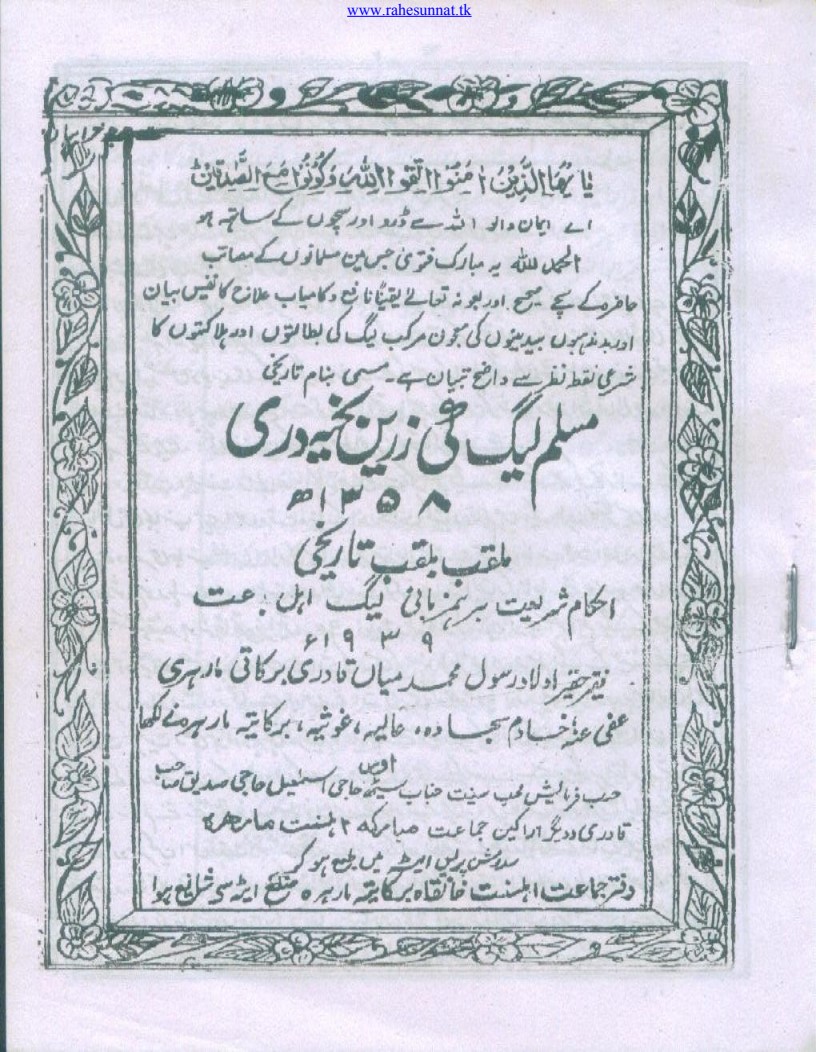 www.rahesunnat.tk
یا یھا الذین اٰمنوا اتقوا اللہ وکونوا مع الصّٰدقین
اے ایمان والو اللہ سے ڈرو اور سچوں کے ساتھ ہو
الحمد للہ یہ مبارک فتویٰ جس میں مسلمانوں کے مصائب
حاضرہ کے سچے صحیح اور بعونہ تعالےٰ یقیناً نافع و کامیاب علاج کا نفیس بیان
اور بدمذہبوں بیدینوں کی معجون مرکب لیگ کی بطالتوں اور ہلاکتوں کا
شرعی نقطۂ نظر سے واضح تبیان ہے۔ مسمی بنام تاریخی
مسلم لیگ کی زرین بخیہ دری
۱۳۵۸ھ
ملقب بلقب تاریخی
احکام شریعت بر لیگ اہل بدعت
۱۹۳۹ء
فقیر حقیر اولاد رسول محمد میاں قادری برکاتی مارہری
عفی عنہ خادم سجادہ، عالیہ، غوثیہ، برکاتیہ مارہرہ نے لکھا
اور
حسب فرمائش محب سنیت جناب سیٹھ حاجی اسمٰعیل حاجی صدیق صاحب
قادری و دیگر اراکین جماعت مبارکہ اہلسنت مارھرہ
پریس ایٹہ میں طبع ہو کر
دفتر جماعت اہلسنت خانقاہ برکاتیہ مارہرہ ضلع ایٹہ سے شائع ہوا